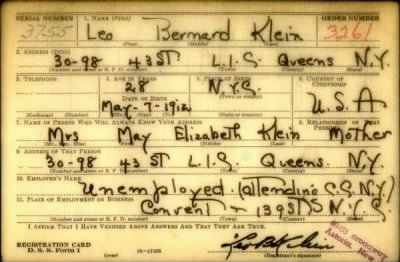 SERIAL NUMBER 1. NAME (Print) ORDER NUMBER
3755 Leo Bernard Klein 3261
(First) (Middle) (Last)
2. ADDRESS (Print)
30-98 43 ST L.I.C. Queens N.Y.
(Number and street or R. F. D. number) (Town) (County) (State)
3. TELEPHONE 4. AGE IN YEARS 5. PLACE OF BIRTH 6. COUNTRY OF CITIZENSHIP
28 N.Y.C.
DATE OF BIRTH (Town or county)
May-7-1912 U.S.A
(Exchange) (Number) (Mo.) (Day) (Yr.) (State or country)
7. NAME OF PERSON WHO WILL ALWAYS KNOW YOUR ADDRESS 8. RELATIONSHIP OF THAT PERSON
Mrs May Elizabeth Klein Mother
(Mr., Mrs., Miss) (First) (Middle) (Last)
9. ADDRESS OF THAT PERSON
30-98 43 ST L.I.C. Queens N.Y.
(Number and street or R. F. D. number) (Town) (County) (State)
10. EMPLOYER'S NAME
Unemployed. (Attending C.C.N.Y.)
11. PLACE OF EMPLOYMENT OR BUSINESS
Convent - 139 ST N.Y.C.
(Number and street or R. F. D. number) (Town) (County) (State)
I AFFIRM THAT I HAVE VERIFIED ABOVE ANSWERS AND THAT THEY ARE TRUE.
REGISTRATION CARD
D. S. S. Form 1 16-17105
(over)
BROADWAY
Astoria, New